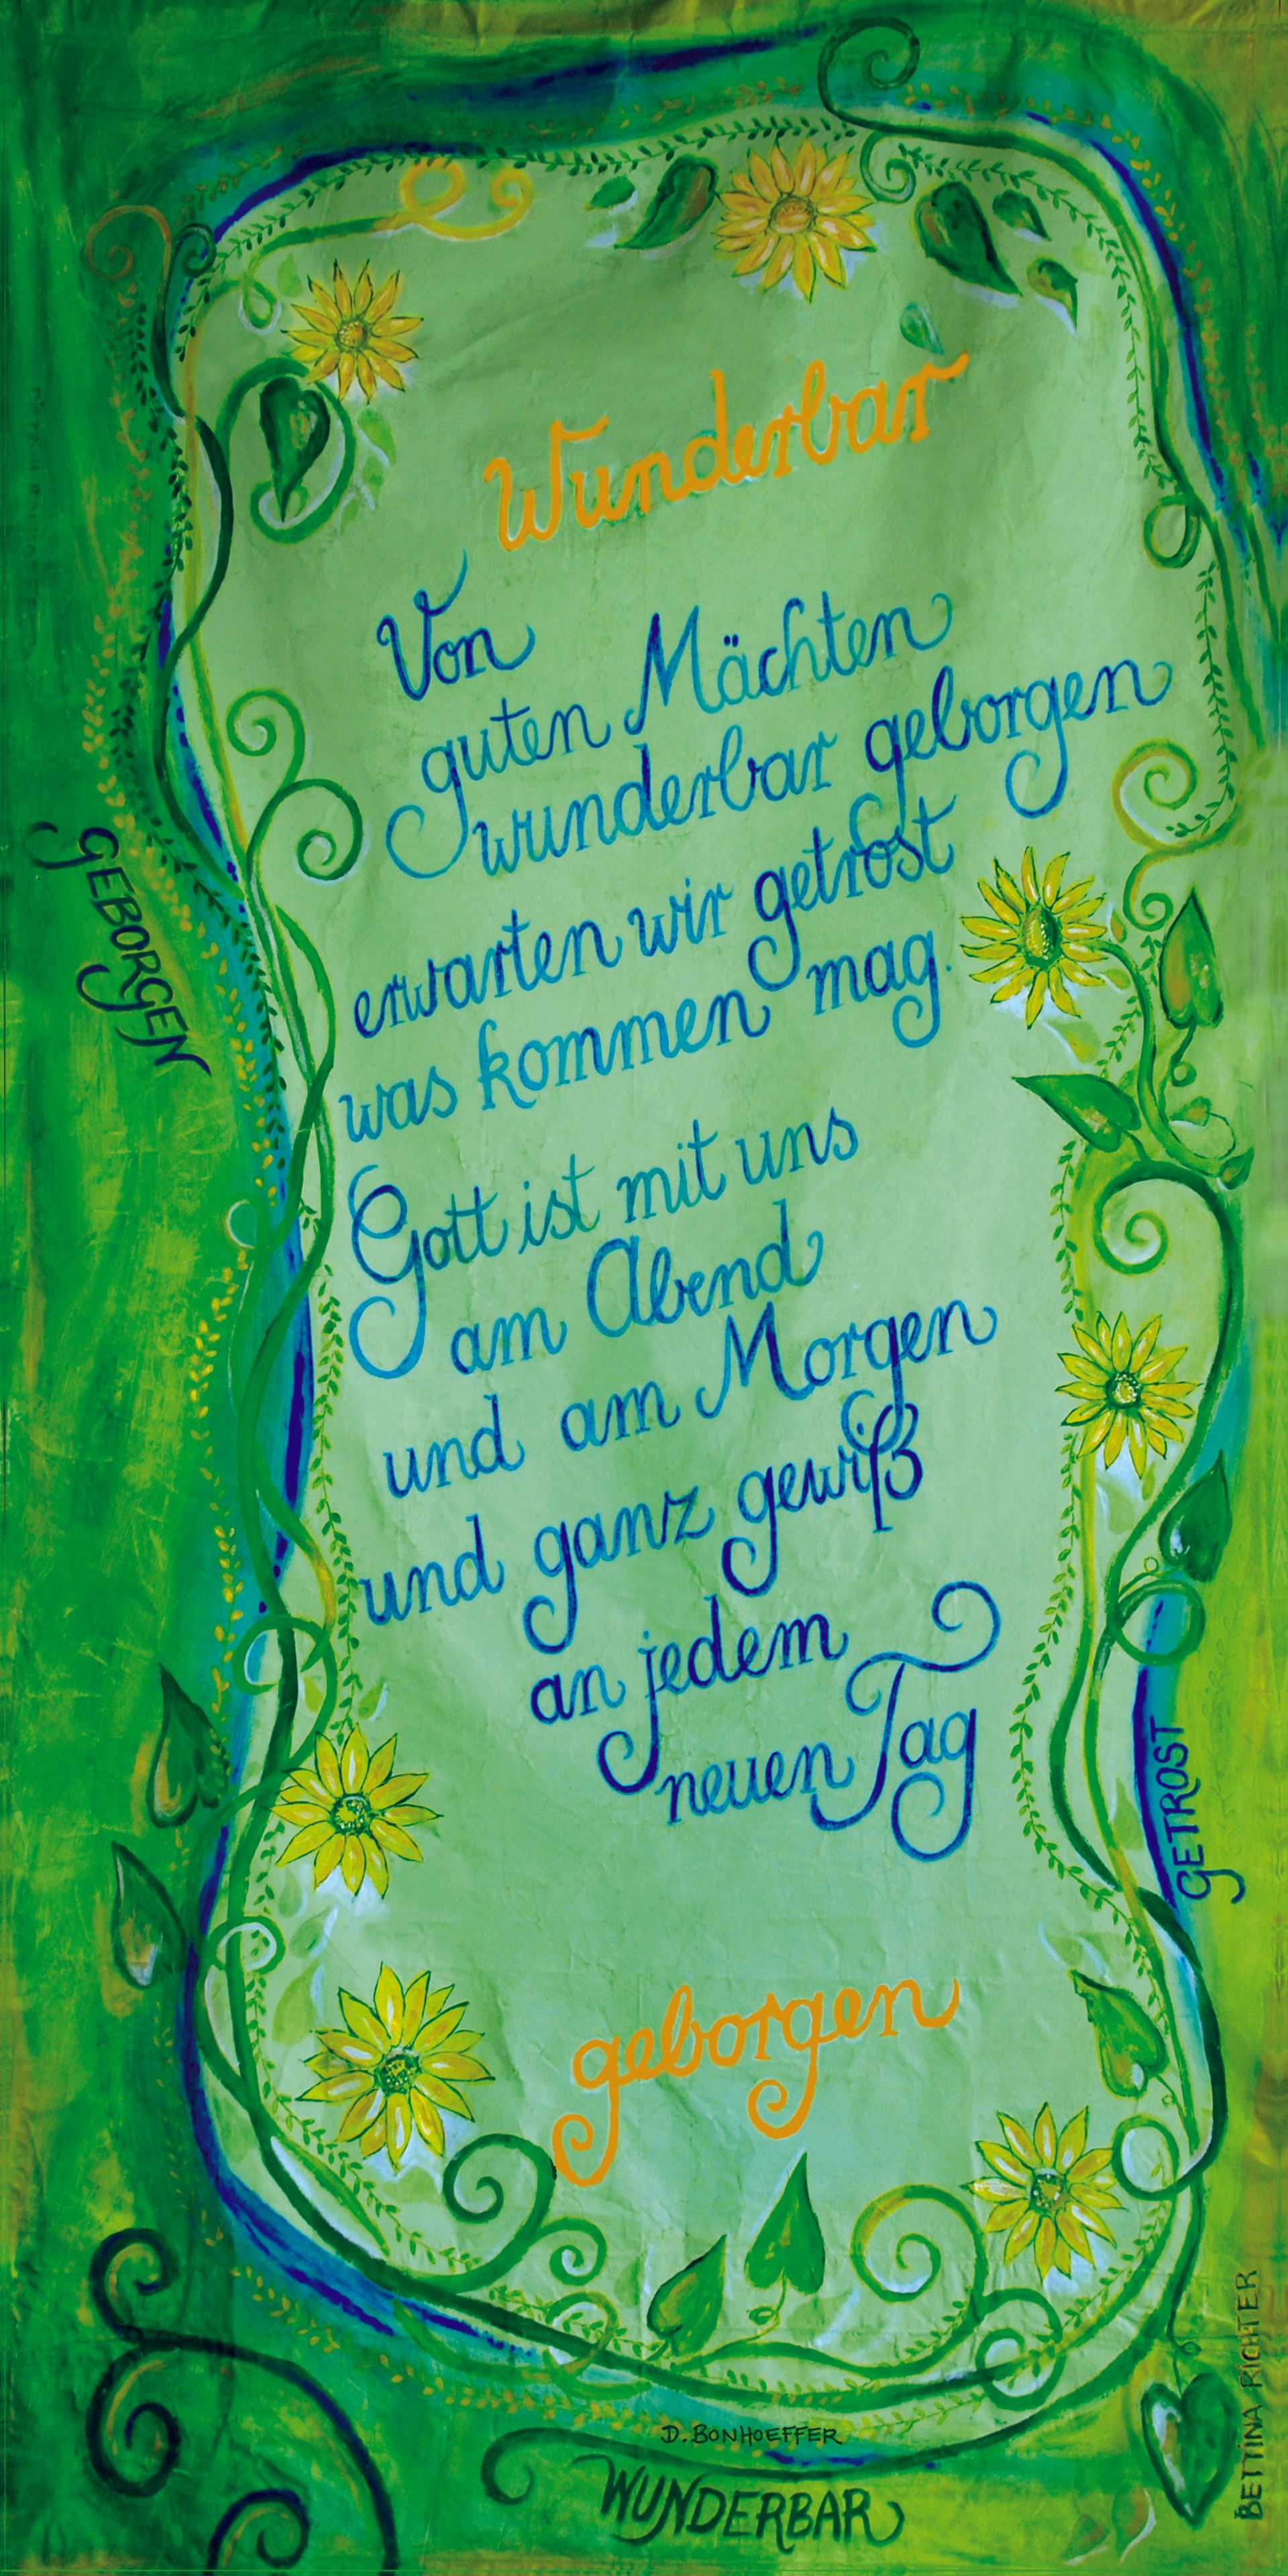 Wunderbar
Von
guten Mächten
wunderbar geborgen
erwarten wir getrost
was kommen mag.
Gott ist mit uns
am Abend
und am Morgen
und ganz gewiß
an jedem
neuen Tag
geborgen
GEBORGEN
GETROST
D. BONHOEFFER
WUNDERBAR
BETTINA RICHTER